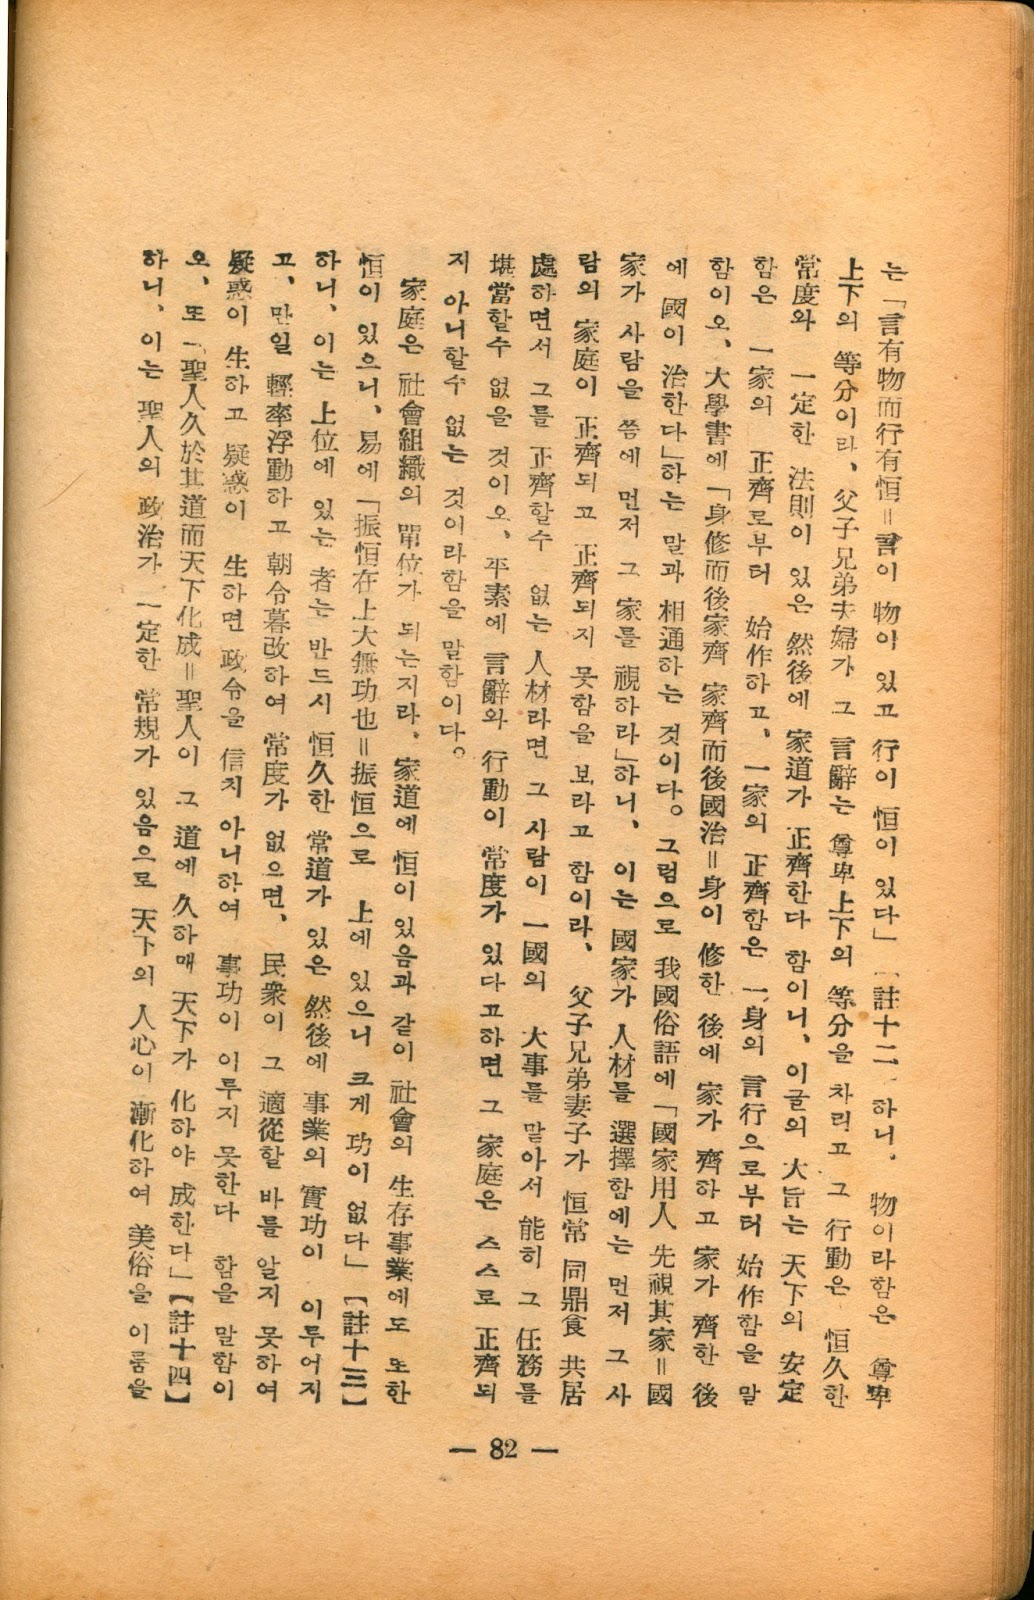 는「言有物而行有恒＝言이 物이 있고 行이 恒이 있다」【註十二】하니、 物이라함은 尊卑
上下의 等分이라、父子兄弟夫婦가 그 言辭는 尊卑上下의 等分을 차리고 그 行動은 恒久한
常度와 一定한 法則이 있은 然後에 家道가 正齊한다 함이니、이글의 大旨는 天下의 安定
함은 一家의 正齊로부터 始作하고、一家의 正齊함은 一身의 言行으로부터 始作함을 말
함이오、大學書에「身修而後家齊 家齊而後國治＝身이 修한 後에 家가 齊하고 家가 齊한 後
에 國이 治한다」하는 말과 相通하는 것이다。그럼으로 我國俗語에「國家用人 先視其家＝國
家가 사람을 쯤에 먼저 그 家를 視하라」하니、이는 國家가 人材를 選擇함에는 먼저 그 사
람의 家庭이 正齊되고 正齊되지 못함을 보라고 함이라、 父子兄弟妻子가 恒常 同鼎食 共居
處하면서 그를 正齊할수 없는 人材라면 그 사람이 一國의 大事를 말아서 能히 그 任務를
堪當할수 없을 것이오、平素에 言辭와 行動이 常度가 있다고하면 그 家庭은 스스로 正齊되
지 아니할수 없는 것이라함을 말함이다。
家庭은 社會組織의 單位가 되는지라、家道에 恒이 있음과 같이 社會의 生存事業에도 또한
恒이 있으니、易에「振恒在上大無功也＝振恒으로 上에 있으니 크게 功이 없다」【註十三】
하니、이는 上位에 있는 者는 반드시 恒久한 常道가 있은 然後에 事業의 實功이 이루어지
고、만일 輕率浮動하고 朝令暮改하여 常度가 없으면、民衆이 그 適從할 바를 알지 못하여
疑惑이 生하고 疑惑이 生하면 政令을 信치 아니하여 事功이 이루지 못한다 함을 말함이
오、또「聖人久於其道而天下化成＝聖人이 그 道에 久하매 天下가 化하야 成한다」【註十四】
하니、이는 聖人의 政治가 一定한 常規가 있음으로 天下의 人心이 漸化하여 美俗을 이룸을
— 82 —